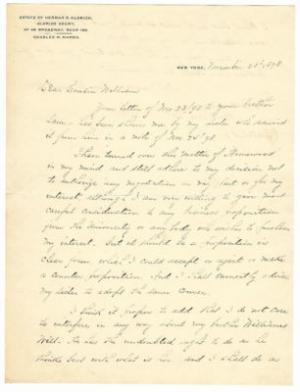 OFFICE OF HERMAN D. ALDRICH,
ALDRICH COURT,
NO. 45 BROADWAY, ROOM 126.
CHARLES H. HARRIS.
NEW YORK, November 28th, 1898
Dear Cousin William
Your letter of Nov 23/98 to your brother
has been shown me by my sister who received
it from him in a note of Nov 25 '98.
I have turned over this matter of
in my mind and still adhere to my decision not
to authorize any negotiation on my part or for my
interest although I am very willing to give most
careful consideration to any business proposition
from the University or anybody who wishes to purchase
my interest. But it should be a proposition so
clear from which I could accept or reject or make
a counter proposition. And I shall earnestly advise
my sister to adopt the same course.
I think it proper to add that I do not care
to interfere in any way about my brother William's
Will. He has the undoubted right to do as he
thinks best with what is his and I shall do as